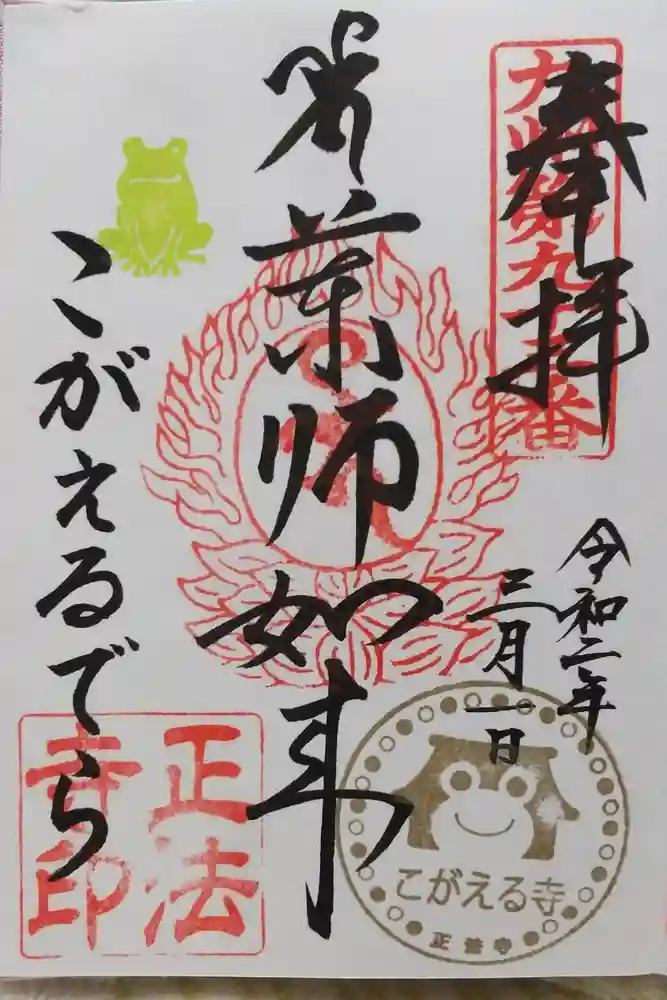 奉拝
九州第九十三番
令和二年
三月一日
薬師如来
こがえるでら
正法
寺印
こがえる寺
正法寺